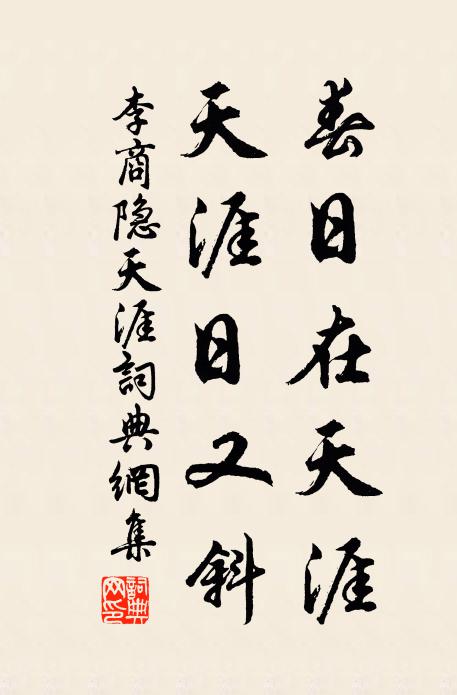 春日在天涯
天涯日又斜
李商隐天涯詞典網集
詞典
网印